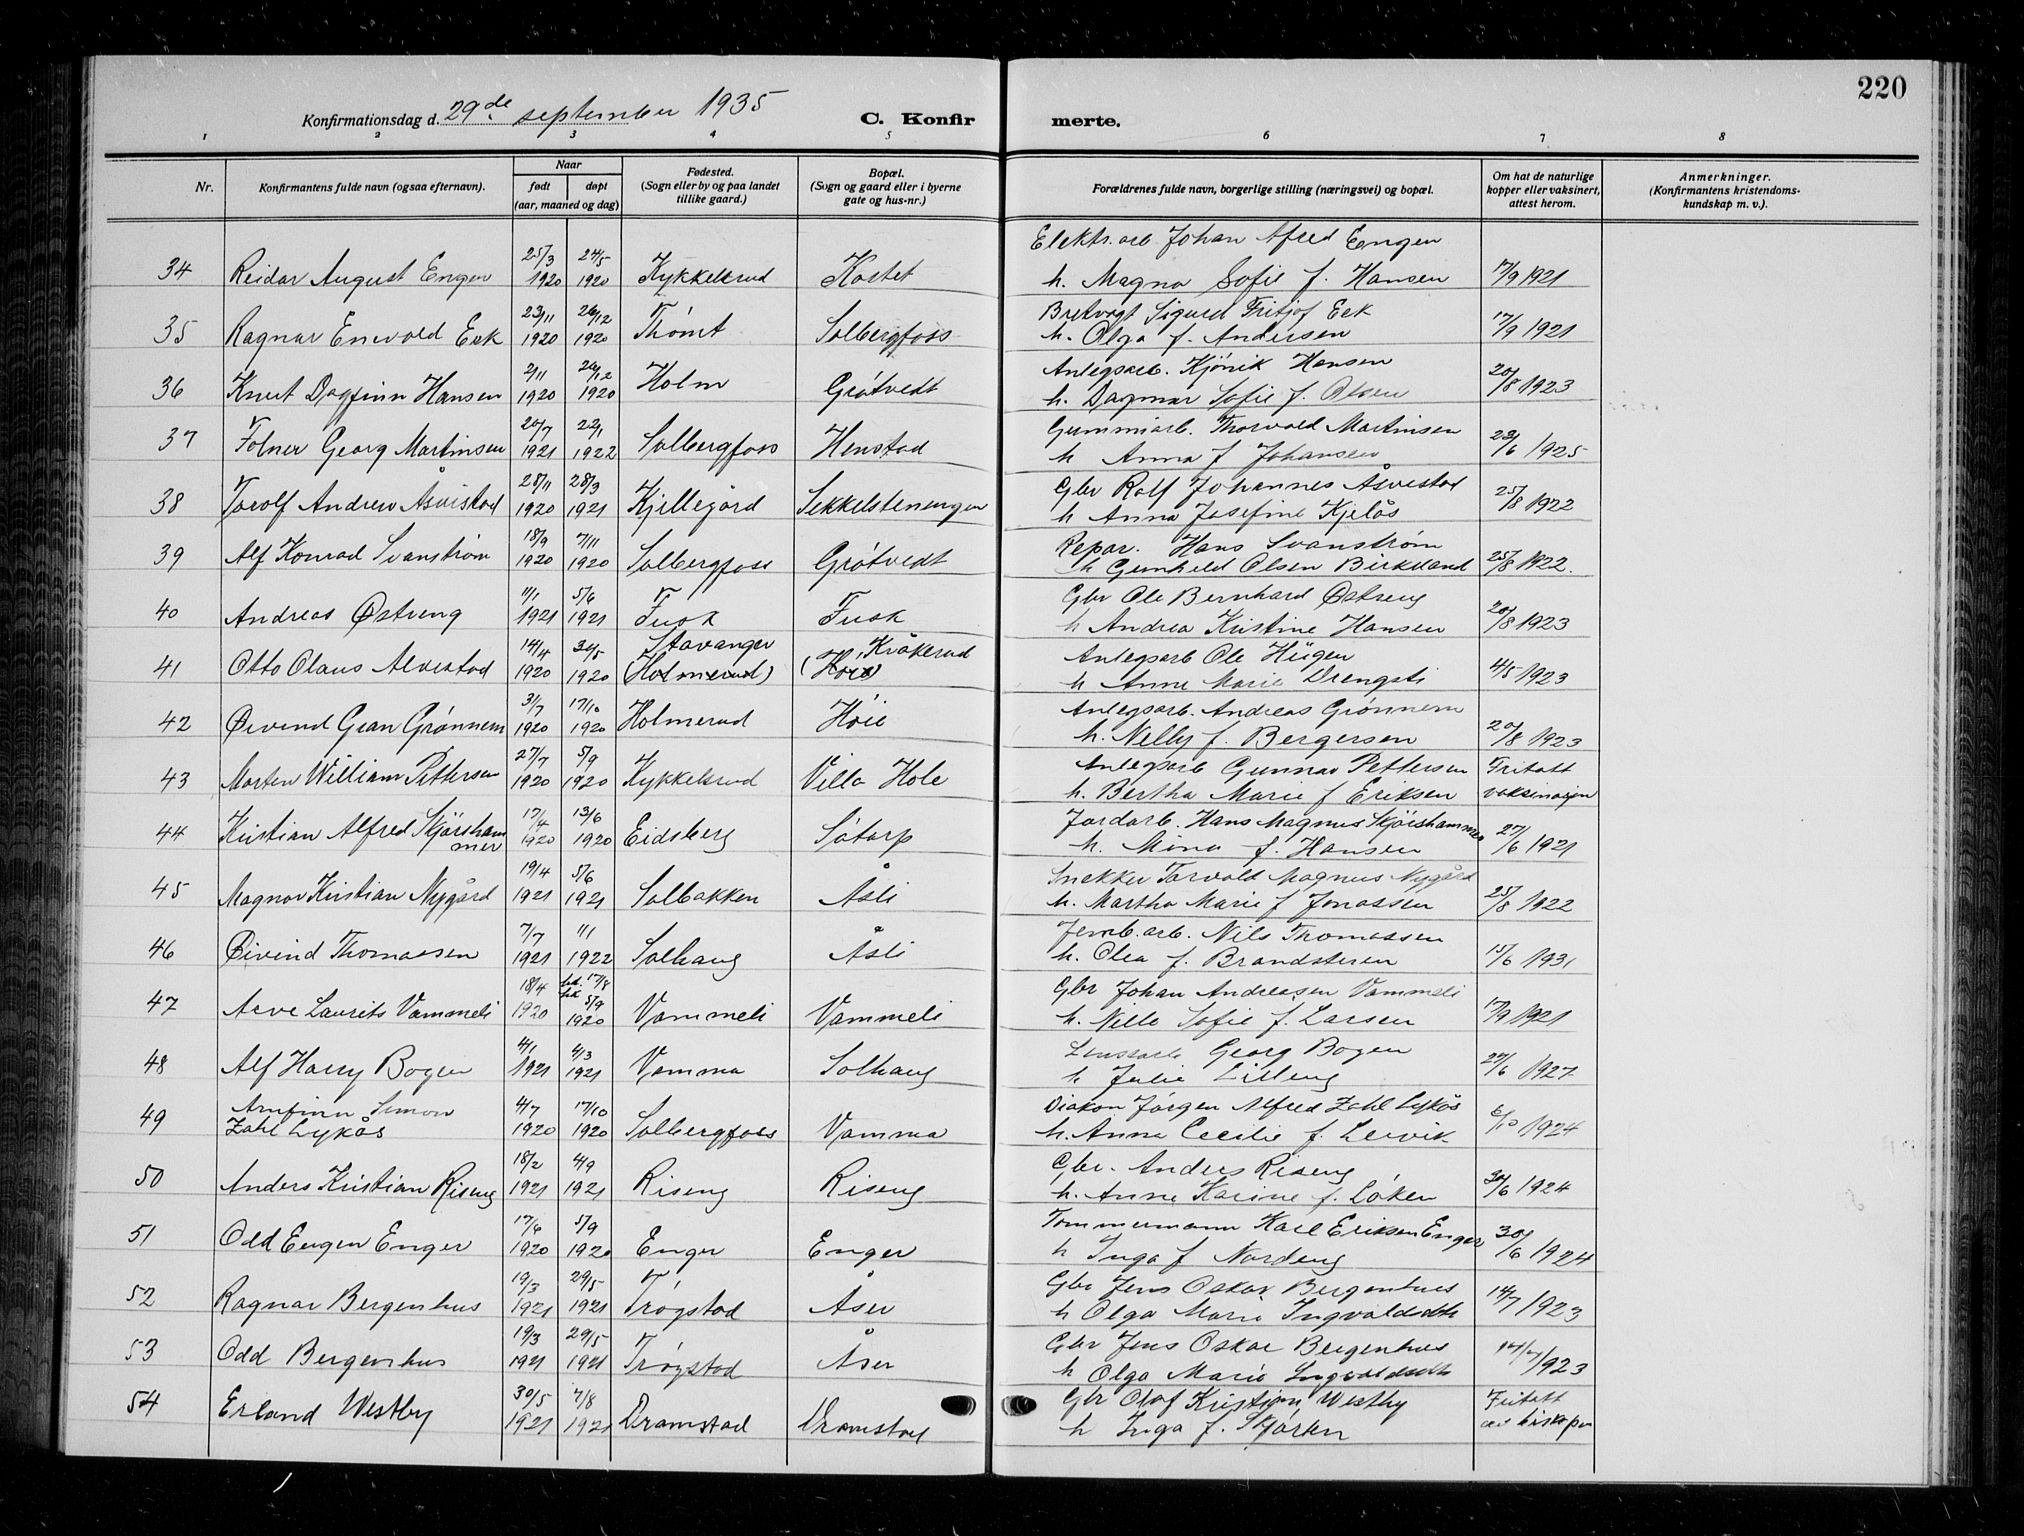 220
Konfirmationsdag d. 29de september 1935
C. Konfir
merte.
1 2 3 4 5 6 7 8
Nr.
Konfirmantens fulde navn (ogsaa efternavn).
Naar
født
døpt
(aar, maaned og dag)
Fødested.
(Sogn eller by og paa landet
tillike gaard.)
Bopæl.
(Sogn og gaard eller i byerne
gate og hus-nr.)
Forældrenes fulde navn, borgerlige stilling (næringsvei) og bopæl.
Om hat de naturlige
kopper eller vaksinert,
attest herom.
Anmerkninger.
(Konfirmantens kristendoms-
kundskap m. v.).
Elektr. arb. Johan Afred Engen
34 Reidar August Engen 25/3 1920 24/5 1920 Kykkelsrud Kostet h. Magna Sofie f. Hansen 17/9 1921
Sigurd Fritjof Eek
35 Ragnar Enevold Eek 23/11 1920 26/12 1920 Thómt Solbergfoss h. Olga f. Andersen 17/9 1921
Anlegsarb. Kjönik Hansen
36 Knut Dagfinn Hansen 2/11 1920 26/12 1920 Holm Grótvedt h. Dagmar Sofie f. Olsen 20/8 1923
Gummiarb. Thorvald Martinsen
37 Folner Georg Martinsen 20/7 1921 22/1 1922 Solbergfoss Henstad h Anna f Johansen 23/6 1925
Gbr Rolf Johannes Åsvestad
38 Torolf Andrew Åsvistad 28/11 1920 28/3 1921 Kjillegård Sekkelstenengen h Anna Josefine Kjelås 25/8 1922
Repar. Hans Svanstrøm
39 Alf Konrad Svanstrøm 18/9 1920 7/11 1920 Solbergfoss Grótvedt h Gunhild Olsen Birkeland 25/8 1922.
Gbr Ole Bernhard Østreng
40 Andreas Østreng 11/1 1921 5/6 1921 Fusk Fusk h Andrea Kristine Hansen 20/8 1923
Stavanger Kråkerud Anlegsarb Ole Hügen
41 Otto Olaus Alvestad 14/4 1920 30/5 1920 (Holmerud) (Hóie) h Anne Marie Drengsti 4/5 1923
Anlegsarb. Andreas Grønnem
42 Øivind Gran Grønnem 31/7 1920 17/10 1920 Holmerud Hóie h. Nelly f. Bergersen 20/8 1923
Anlegsarb Gunnar Pettersen Fritatt
43 Morten William Pettersen 27/7 1920 5/9 1920 Kykkelsrud Villa Hole h. Bertha Marie f Eriksen vaksinasjon
Jordarb. Hans Magnus Skjórshammer
44 Kristian Alfred Skjórsham
mer 17/4 1920 13/6 1920 Eidsberg Sótorp h. Mina f. Hansen 27/6 1921
Snekker Torvald Magnus Nygård
45 Magnar Kristian Nygård 19/4 1921 5/6 1921 Solbakken Åsli h. Martha Marie f Jonassen 25/8 1922
Jernb. arb. Nils Thomassen
46 Øivind Thomassen 7/7 1921 1/1 1922 Solhaug Åsli h. Olea f. Brandsteren 15/6 1931
Gbr Johan Andreasen Vammeli
47 Arve Laurits Vammeli 18/4 1920 17/8 5/9 1920 Vammeli Vammeli h. Nille Sofie f. Larsen 17/9 1921
Lensearb Georg Bogen
48 Alf Harry Bogen 4/1 1921 6/3 1921 Vamma Solhaug h Julie Lilleng 22/6 1927
Arnfinn Simon Diakon Jórgen Alfred Zahl Lykås
49 Zahl Lykås 4/7 1920 17/10 1920 Solbergfoss Vamma h. Anna Cecilie f. Lervik 6/10 1924
Gbr. Anders Riseng
50 Anders Kristian Riseng 18/2 1921 4/9 1921 Riseng Riseng h. Anne Karine f. Løken 30/6 1924
Tømmermann Karl Eriksen Enger
51 Odd Eugen Enger 17/6 1920 5/9 1920 Enger Enger h Inga f Nordeng 30/6 1924
Gbr Jens Oskar Bergenhus
52 Ragnar Bergenhus 19/3 1921 29/5 1921 Trógstad Åser h Olga Marie Ingvaldsdtr 14/7 1923
Gbr Jens Oskar Bergenhus
53 Odd Bergenhus 19/3 1921 29/5 1921 Trógstad Åser h Olga Marie Ingvaldsdtr 14/7 1923
Gbr Olaf Kristian Westby Fritatt
54 Erland Westby 30/5 1921 7/8 1921 Dramstad Dramstad h Inga f. Skjórten av biskopen